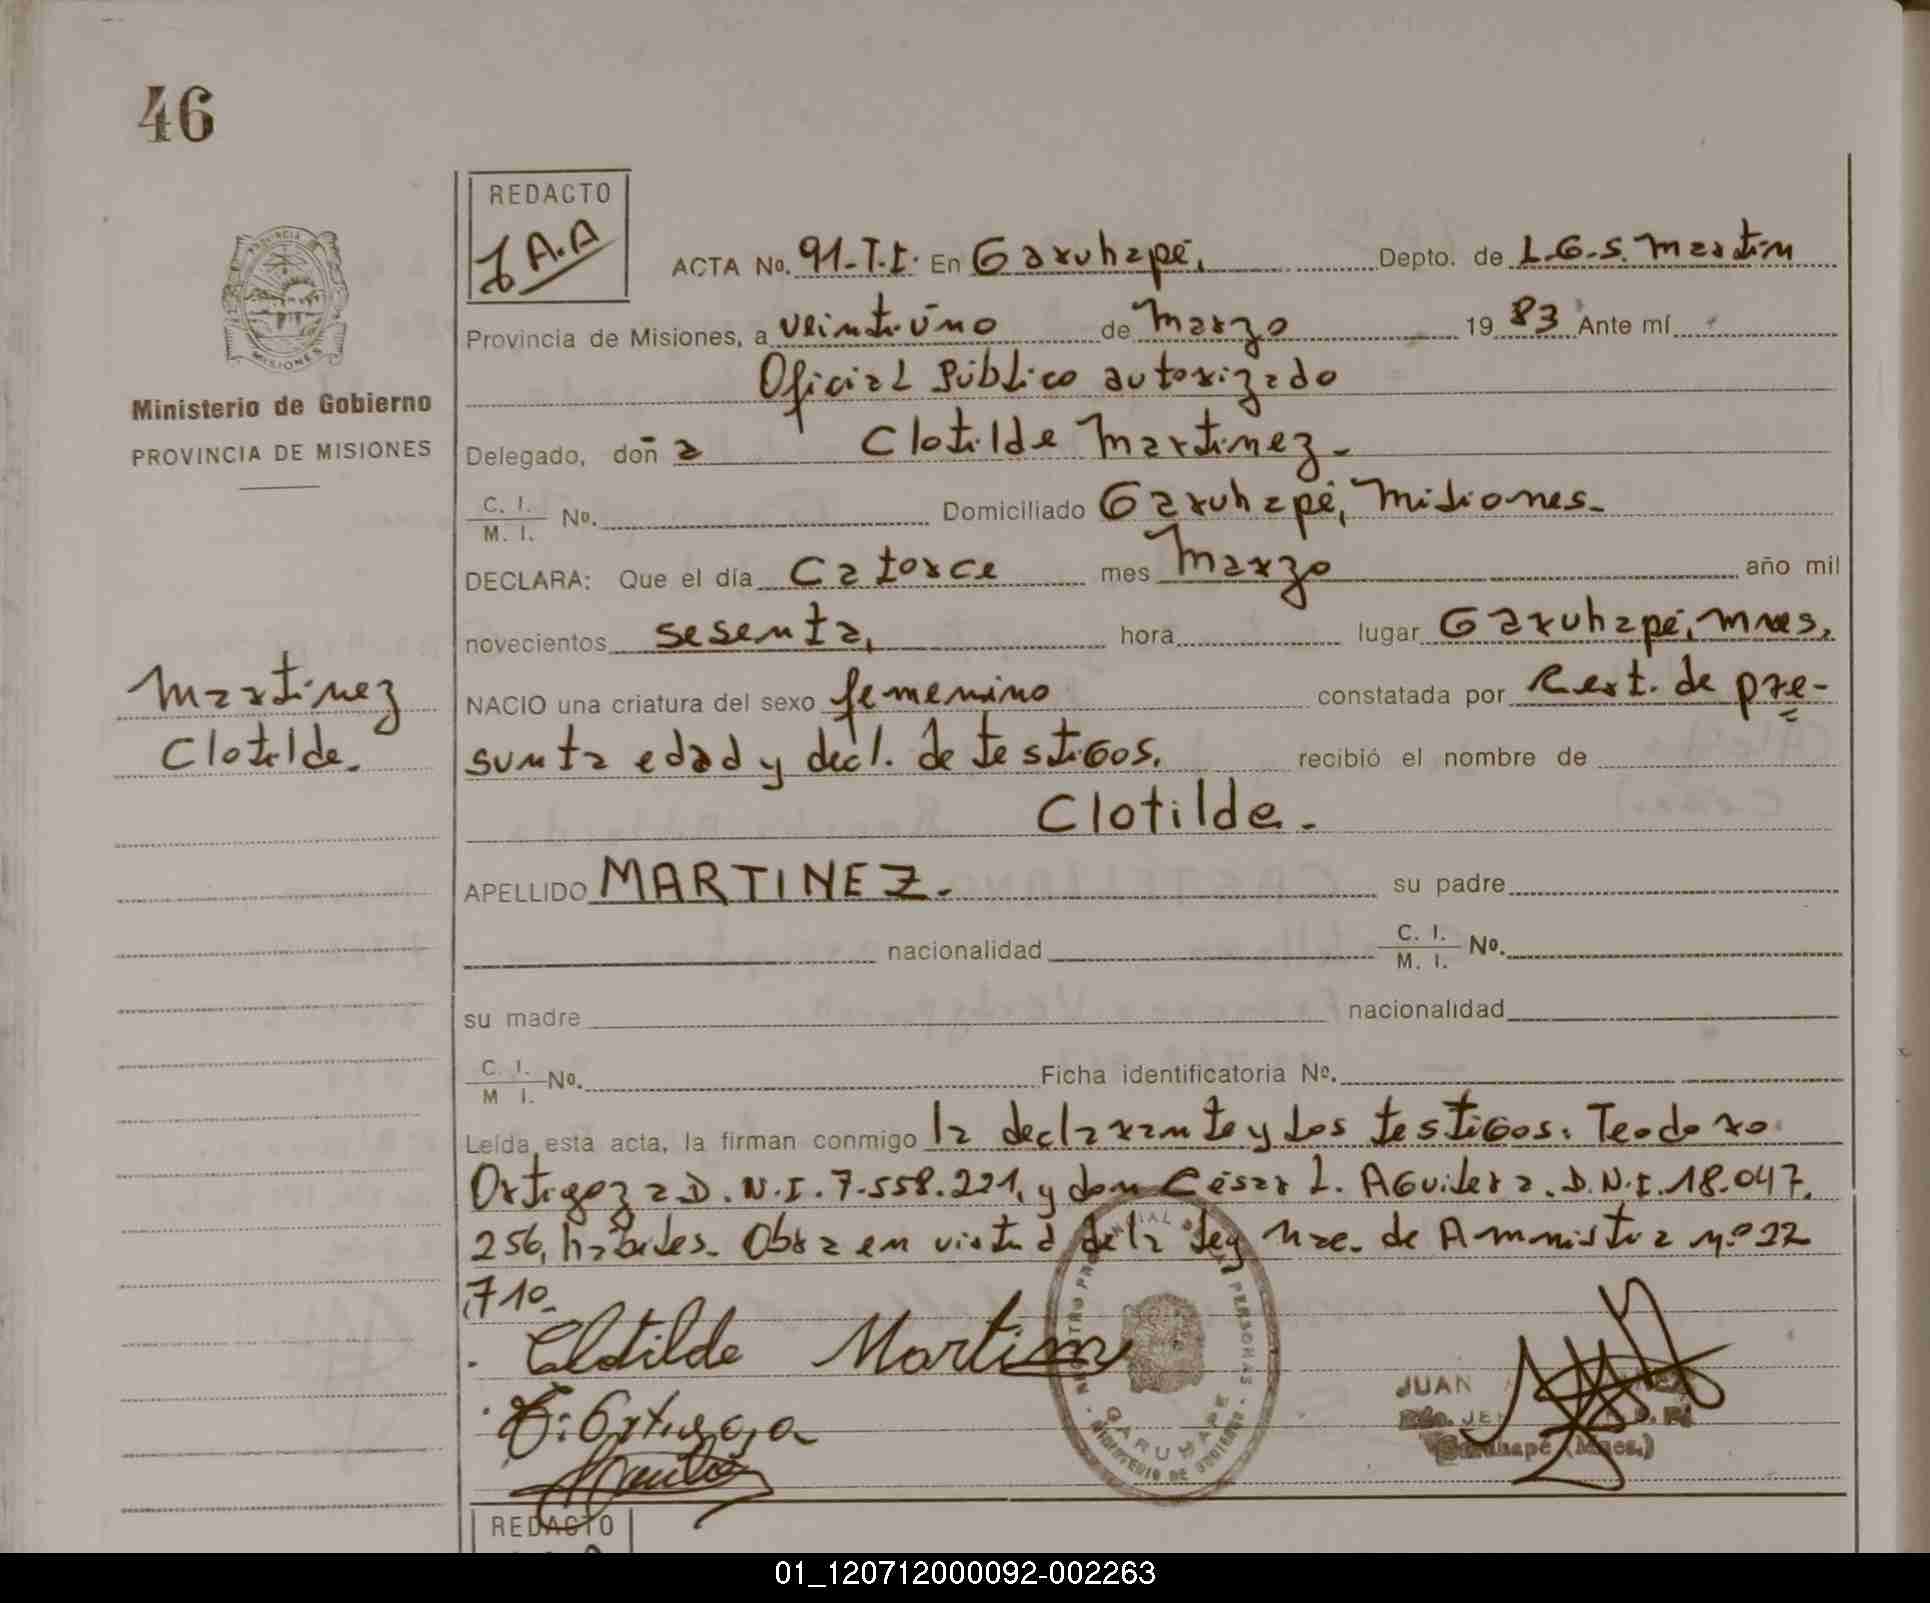 46
REDACTO
J A.A
ACTA No. 91-T.I. En Garuhapé, Depto. de L.G.S. Martín
Provincia de Misiones, a veintiúno de Marzo 1983 Ante mí
Oficial Público autorizado
Ministerio de Gobierno
PROVINCIA DE MISIONES
Delegado, doña Clotilde Martinez.-
C. I.
M. I. No. Domiciliado Garuhapé, Misiones.-
DECLARA: Que el día Catorce mes Marzo año mil
novecientos sesenta, hora lugar Garuhapé, Mnes.
Martinez
Clotilde.
NACIO una criatura del sexo femenino constatada por Cert. de pre-
sunta edad y decl. de testigos. recibió el nombre de
Clotilde.-
APELLIDO MARTINEZ.- su padre
nacionalidad C. I.
M. I. No.
su madre nacionalidad
C. I.
M I. No. Ficha identificatoria No.
Leída esta acta, la firman conmigo la declarante y los testigos: Teodoro
Ortigoza D.N.I. 7.558.221, y don César L. Aguilera. D.N.I. 18.047.
256, habiles. Obra en virtud de la Ley Nac. de Amnistia nº 22
710.-
Clotilde Martinez
T. Ortigoza
REGISTRO PROVINCIAL DE LAS PERSONAS
GARUHAPE
MINISTERIO DE GOBIERNO
JUAN
Garuhapé (Mnes.)
REDACTO
01_120712000092-002263